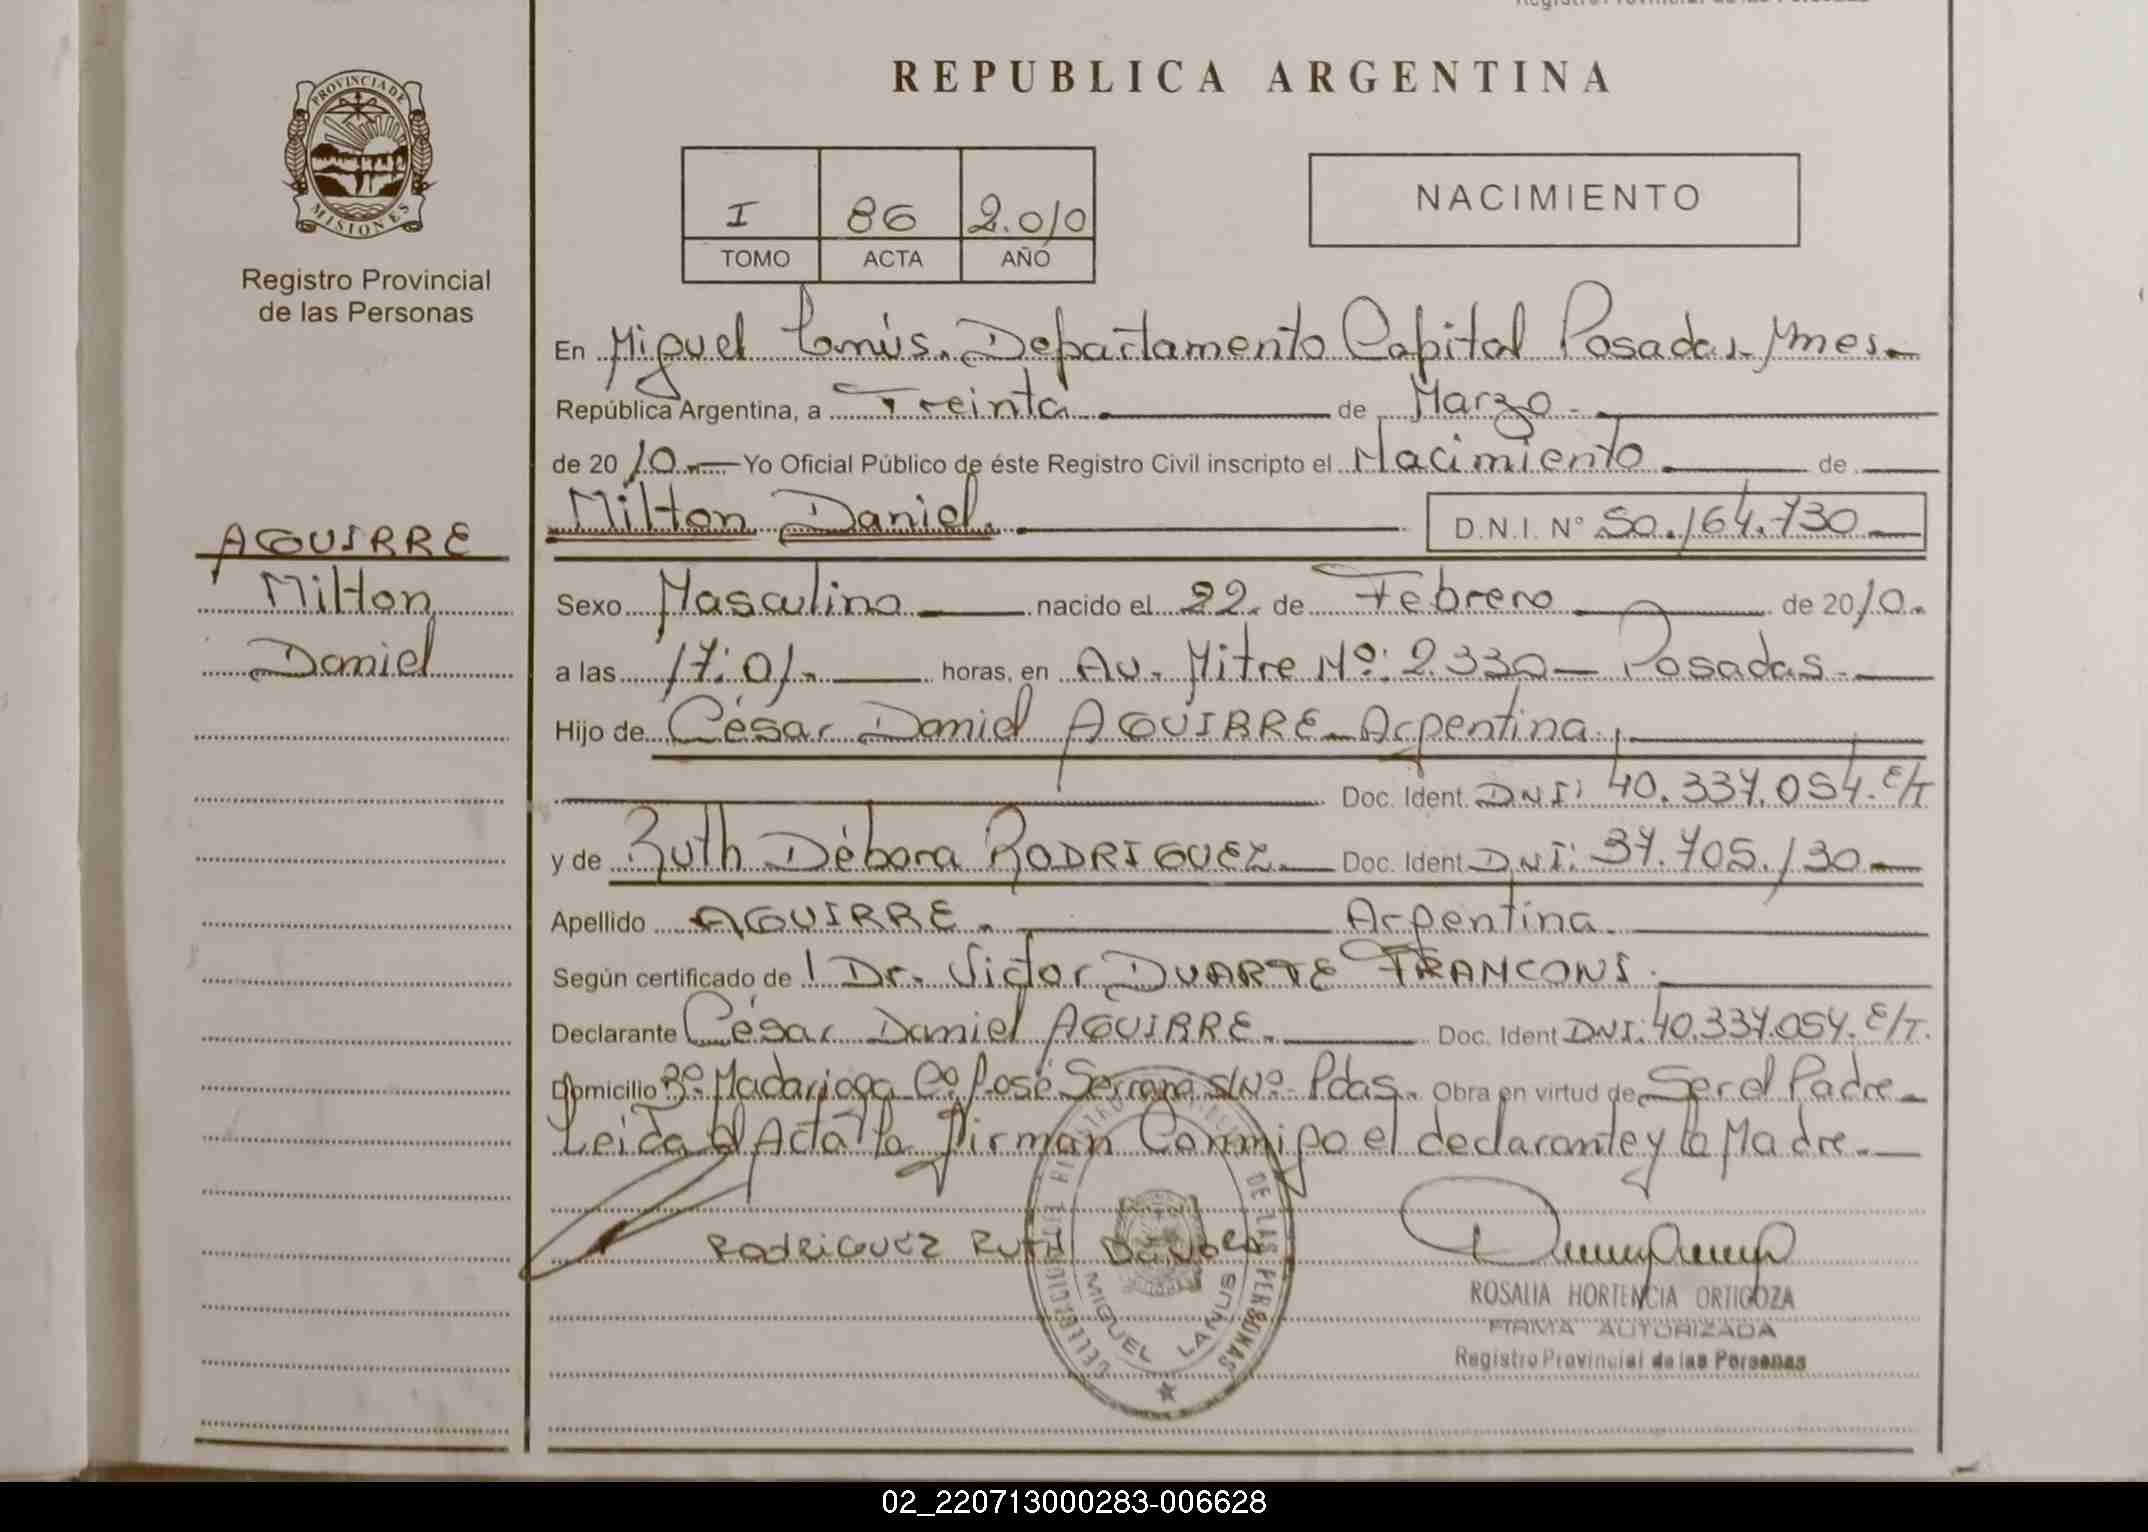 REPUBLICA ARGENTINA
PROVINCIA DE
MISIONES
Registro Provincial
de las Personas
I 86 2.010
TOMO ACTA AÑO
NACIMIENTO
En Miguel Lanús. Departamento Capital Posadas. Mnes.
República Argentina, a Treinta de Marzo
de 2010 Yo Oficial Público de éste Registro Civil inscripto el Nacimiento de
Milton Daniel. D.N.I. N° 50.164.730
AGUIRRE
Milton
Daniel
Sexo Masculino nacido el 22. de Febrero de 2010.
a las 17:01. horas, en Av. Mitre Nº: 2.330 - Posadas.
Hijo de César Daniel AGUIRRE - Argentina.
Doc. Ident. DNI: 40.337.054. E/T
y de Ruth Débora RODRIGUEZ. Doc. Ident DNI: 37.705.130
Apellido AGUIRRE. Argentina.
Según certificado de Dr. Victor DUARTE FRANCONI.
Declarante César Daniel AGUIRRE. Doc. Ident DNI: 40.337.054. E/T.
Domicilio Bº Madariaga Cº José Serrana S/Nº - Pdas. Obra en virtud de Ser el Padre
Leida el Acta la firman Conmigo el declarante y la Madre.
RODRIGUEZ RUTH
DELEGACION DE REGISTRO DE LAS PERSONAS
MIGUEL LANUS
ROSALIA HORTENCIA ORTIGOZA
FIRMA AUTORIZADA
Registro Provincial de las Personas
02_220713000283-006628